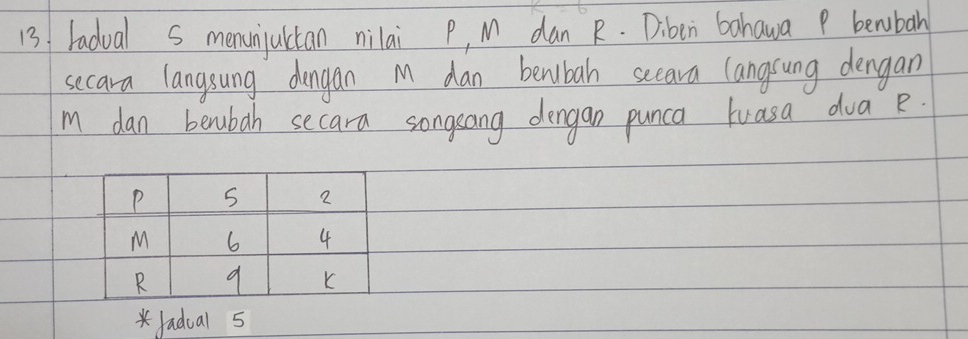 13. Jadual 5 menunjukkan nilai P, M dan R. Diberi bahawa P berubah
secara langsung dengan M dan berubah secara langsung dengan
M dan berubah secara songsang dengan punca kuasa dua R.
P 5 2
M 6 4
R 9 K
* Jadual 5